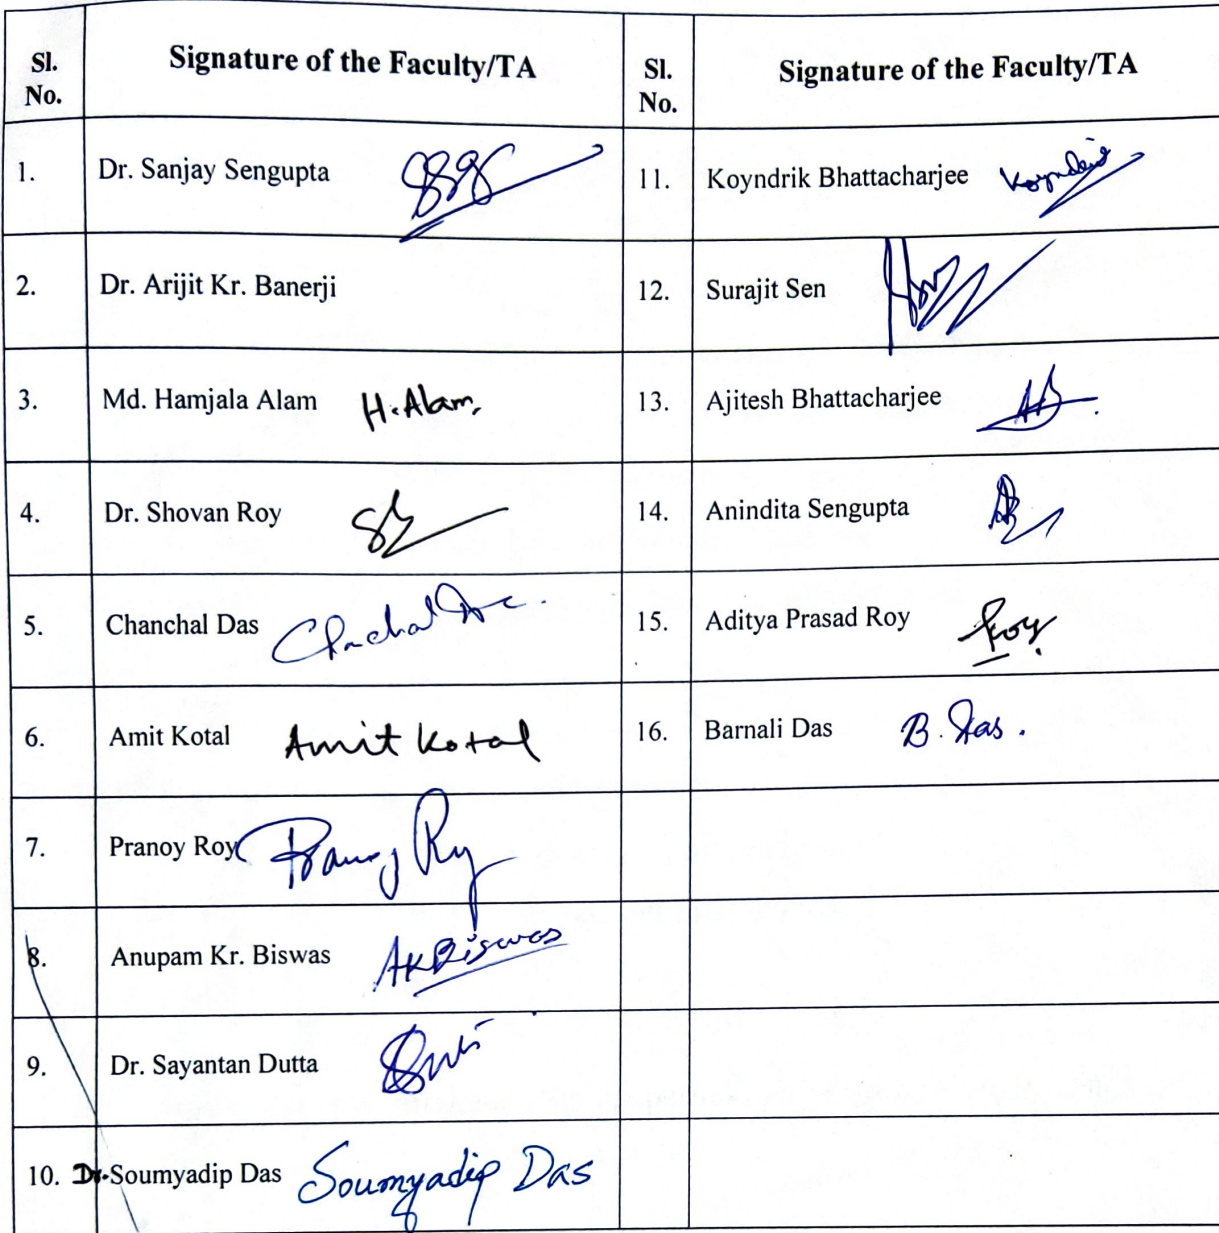 Sl. No. Signature of the Faculty/TA Sl. No. Signature of the Faculty/TA
1. Dr. Sanjay Sengupta 11. Koyndrik Bhattacharjee
2. Dr. Arijit Kr. Banerji 12. Surajit Sen
3. Md. Hamjala Alam H. Alam, 13. Ajitesh Bhattacharjee
4. Dr. Shovan Roy 14. Anindita Sengupta
5. Chanchal Das 15. Aditya Prasad Roy Roy
6. Amit Kotal Amit Kotal 16. Barnali Das B. Das.
7. Pranoy Roy Pranoy Roy
8. Anupam Kr. Biswas AKBiswas
9. Dr. Sayantan Dutta
10. Dr. Soumyadip Das Soumyadip Das